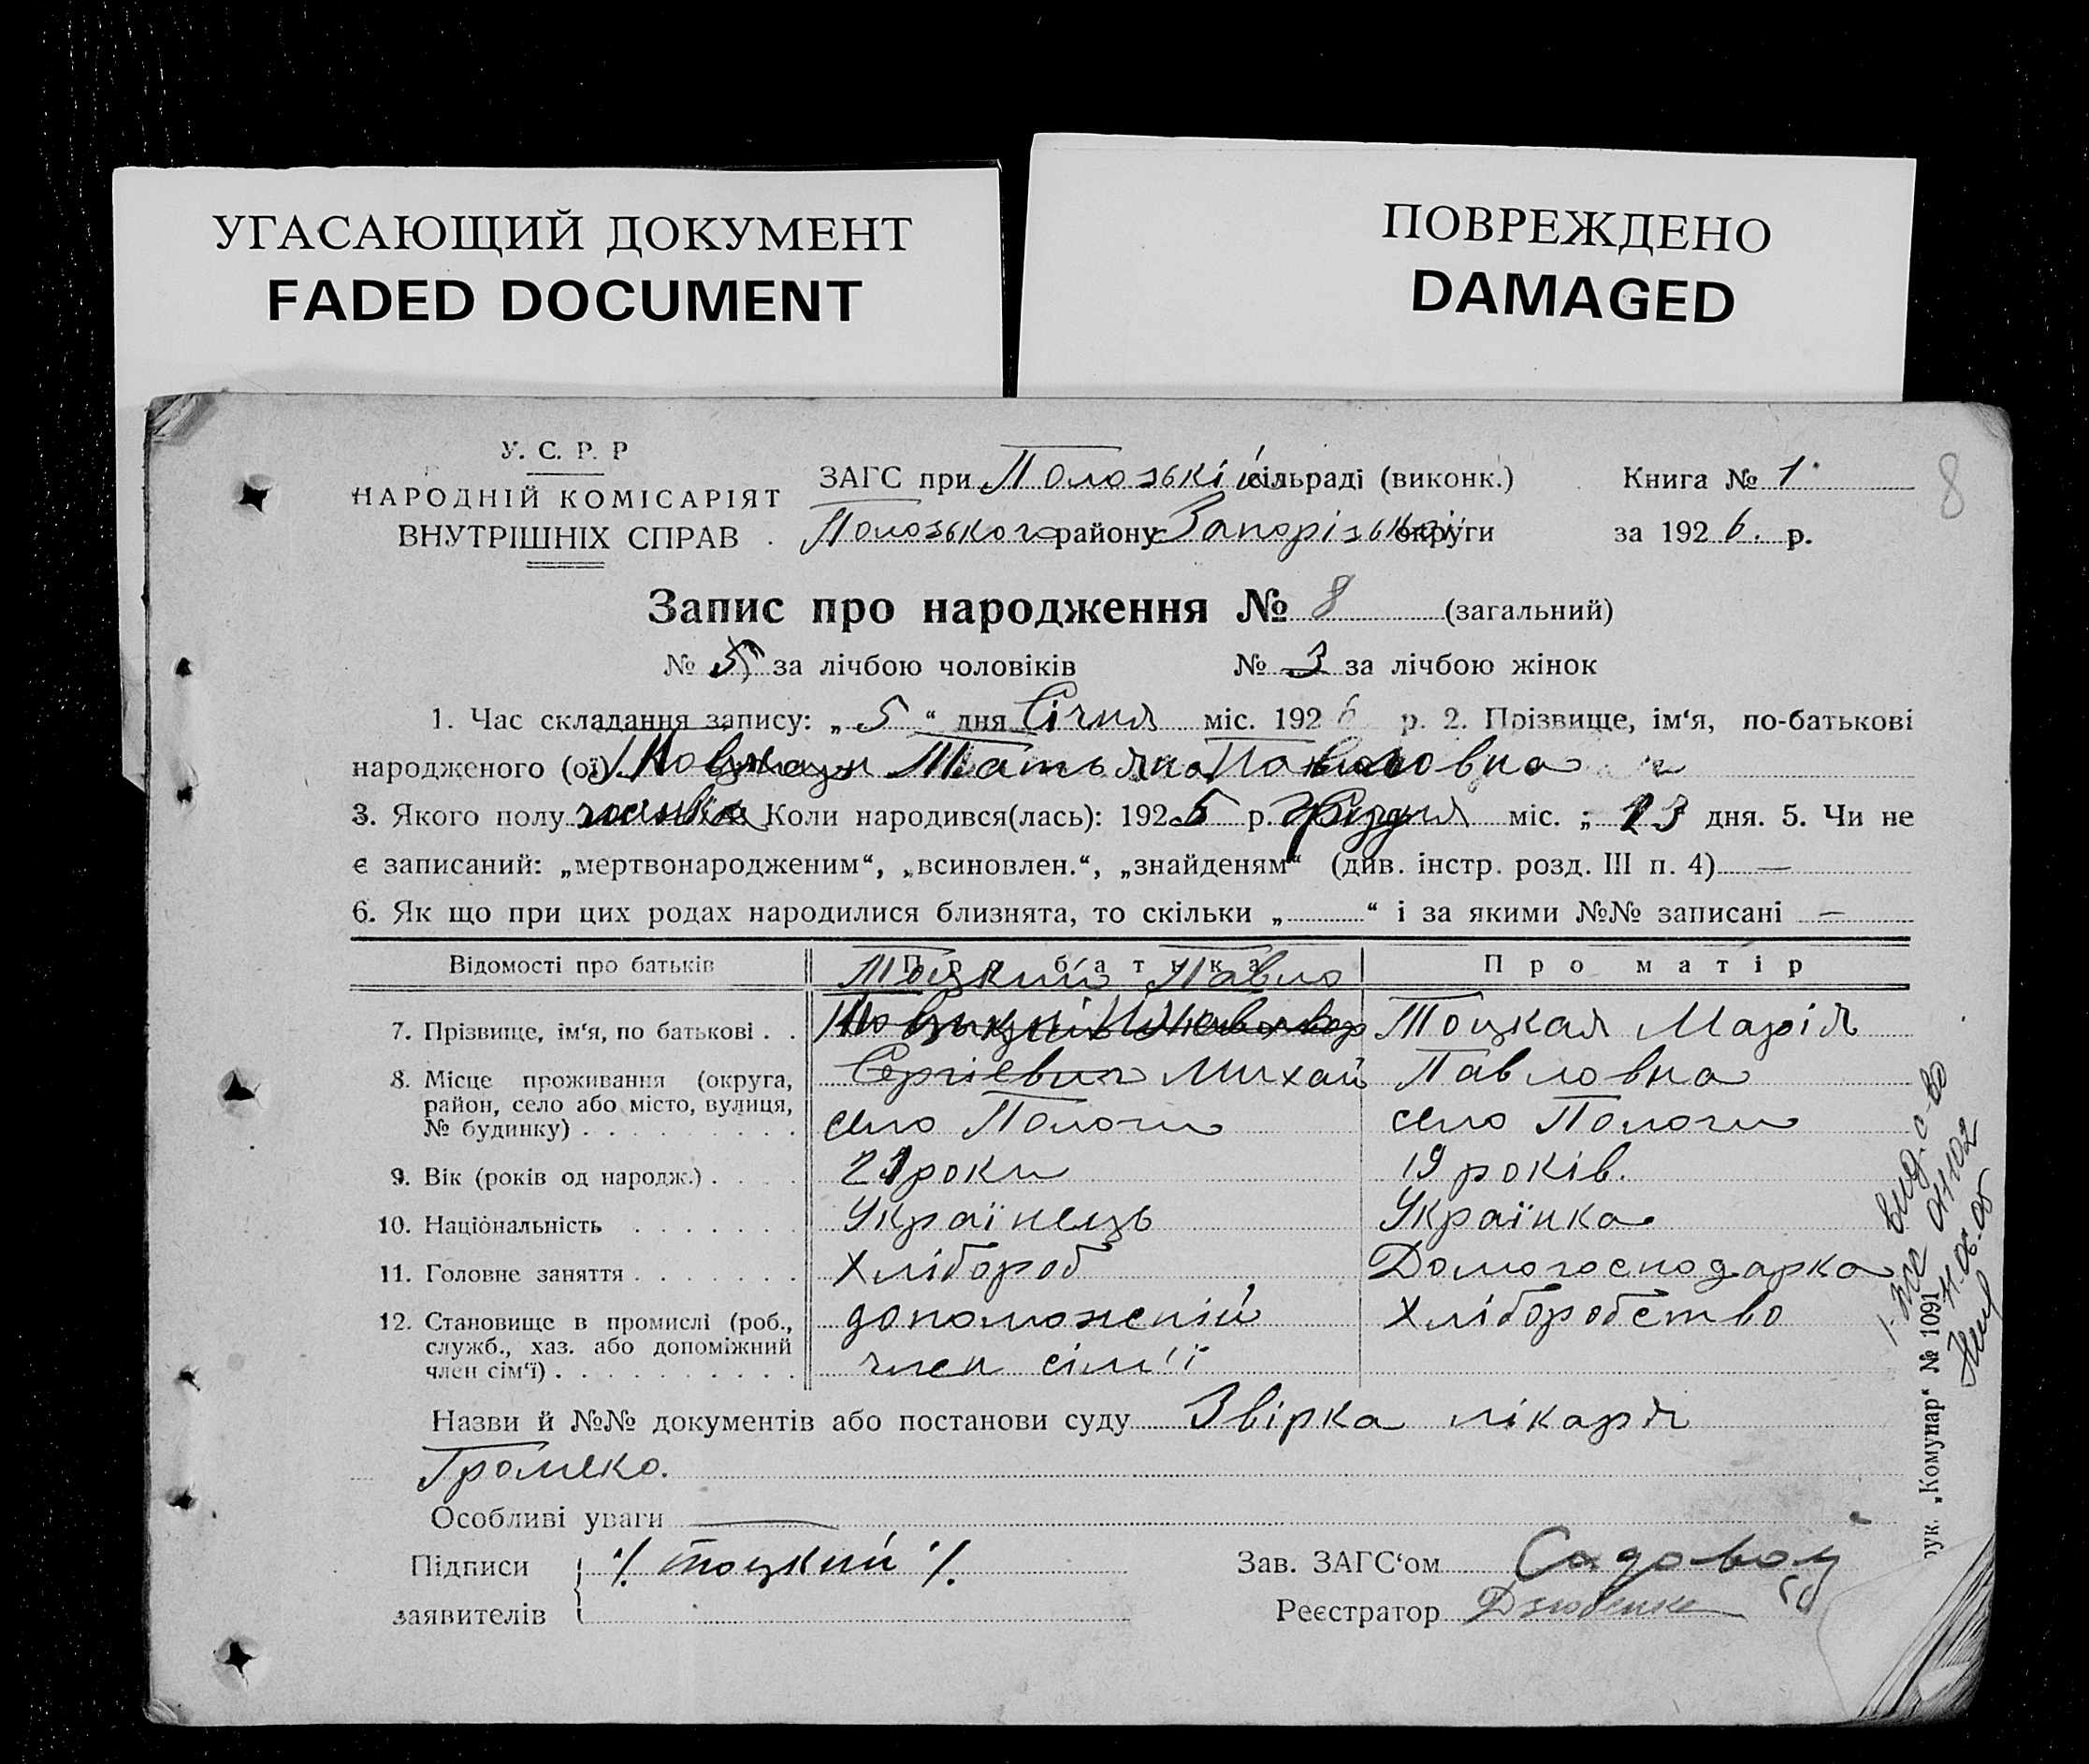 УГАСАЮЩИЙ ДОКУМЕНТ
FADED DOCUMENT
ПОВРЕЖДЕНО
DAMAGED
8
У. С. Р. Р
НАРОДНІЙ КОМІСАРІЯТ
ВНУТРІШНІХ СПРАВ
ЗАГС при Пологзькій сільраді (виконк.) Книга № 1
Пологзького району Запорізької округи за 1926. р.
Запис про народження № 8 (загальний)
№ 5 за лічбою чоловіків № 3 за лічбою жінок
1. Час складання запису: „ 5 “ дня Січня міс. 1926 р. 2. Прізвище, ім‘я, по-батькові
народженого (ої) Татьяна Павловна
3. Якого полу жіноча Коли народився(лась): 1925 р. Грудня міс. „ 23 дня. 5. Чи не
є записаний: „мертвонародженим“, „всиновлен.“, „знайденям“ (див. інстр. розд. III п. 4) —
6. Як що при цих родах народилися близнята, то скільки „ “ і за якими №№ записані —
Відомості про батьків Про батька Про матір
Тоцкий Павло
7. Прізвище, ім‘я, по батькові . . Тоцкая Марія
Сергієвич Михай Павловна
8. Місце проживання (округа,
район, село або місто, вулиця,
№ будинку) . . . . . . . . . село Пологи село Пологи
9. Вік (років од народж.) . . . . 21 роки 19 років.
10. Національність . . . . . . . Українець Українка
11. Головне заняття . . . . . . . Хлібороб Домогосподарка
12. Становище в промислі (роб.,
служб., хаз. або допоміжний
член сім‘ї) . . . . . . . . . . допоможеній член сім'ї Хліборобство
Назви й №№ документів або постанови суду Звірка лікаря
Громеко.
Особливі уваги —
Підписи ./. тоцкий ./. Зав. ЗАГС‘ом Садовой
заявителів Реєстратор Дзюбенко
рук. „Комунар“ № 1091